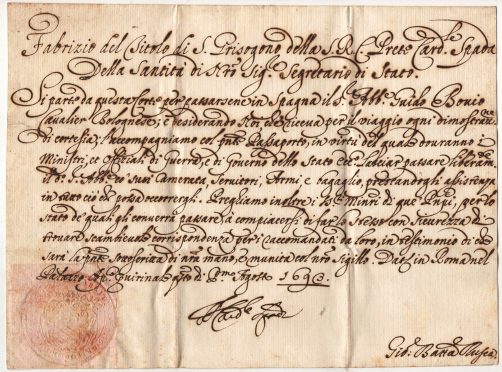 Fabrizio del Titolo di S. Grisogono della S.R.C. Prete Card.le Spada
Della Santità di Nro Sig.re Segretario di Stato.
Si parte da questa Corte per passarsene in Spagna il S. Abb.e Guido Bovio
Cavalier Bolognese; e desiderando Noi, che riceva per il viaggio ogni dimostraz.ne
di cortesia; l'accompagniamo col pnte Passaporto, in virtù del quale dovranno i
Ministri, et Offiziali di Guerra, e di Governo dello Stato Ecc.co lasciar passare liberam.te
il d.o S. Abb.e co' suoi Camerata, Servitori, Armi e bagaglio, prestandogli assistenza
in tutto ciò che possa occorrergli. Preghiamo inoltre i Minri di que' Prnpi, per lo
Stato de' quali gli converrà passare, a compiacersi di far lo stesso con sicurezza di
trovare scambievole corrispondenza per i raccomandati da loro, in testimonio di che
sarà la pnte sottoscritta di nra mano, e munita col nro Sigillo. Dat. in Roma nel
Palazzo Ap. Quirinale p.mo Agosto 1693.
Gio: Batta